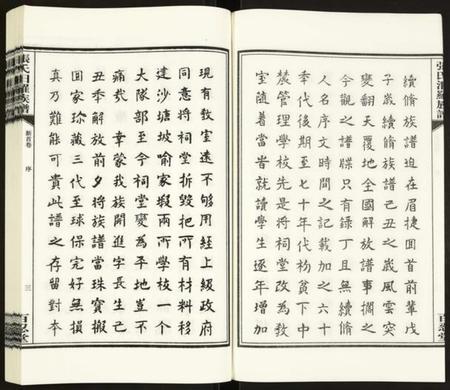 續脩族譜迫在眉捷回首前輩戊
子歲續脩族譜己丑之歲風雲突
變翻天覆地全國解放譜事擱之
今觀之譜牒只有錄丁且無續脩
人名序文時間之記載加之六十
年代後期至七十年代枌貧下中
農管理學校先是將祠堂改為教
室隨着當皆就讀學生逐年增加
現有教室遠不够用經上級政府
同意將祠堂拆毀把所有材料移
建沙塘坡喻家塅兩所學校一個
大隊部至今祠堂變為平地豈不
痛哉 幸蒙我族開進字長生己
丑季解放前夕將族譜當珠寶搬
回家珍藏三代至球保完好無損
真乃難能可貴此譜之存留對本
新首卷 序 三
百忍堂